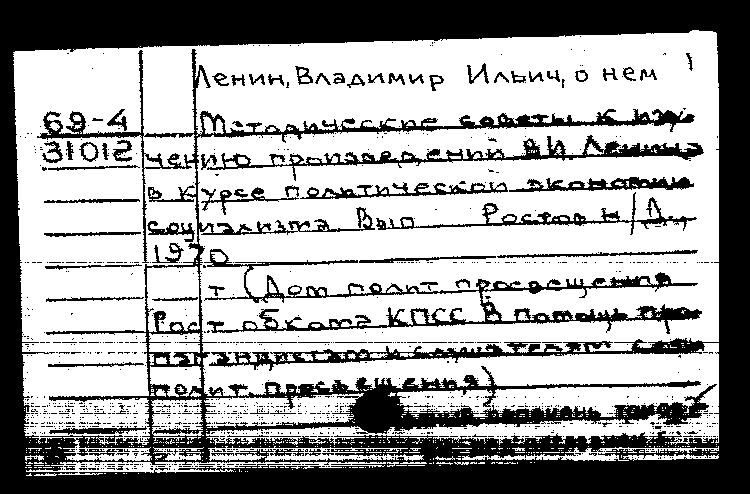 Ленин, Владимир Ильич, о нем
69-4 Методические советы к изу-
31012 чению произведений В И Ленина
в курсе политической экономии
социализма Вып Ростов н/Д.,
1970
т (Дом полит просвещения
Рост обкома КПСС В помощь про-
пагандистам и слушателям сети
полит. просвещения)
перечень томов